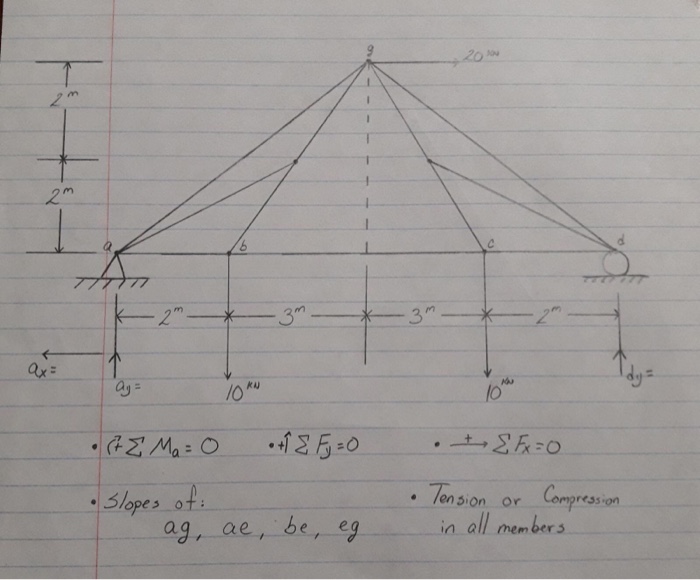 g
20 KN
2 m
2 m
a
b
c
d
2 m
3 m
3 m
2 m
ax =
ay =
10 KN
10 KN
dy =
• ↶+ Σ Ma = 0 • +↑ Σ Fy = 0 • +→ Σ Fx = 0
• Slopes of: • Tension or Compression
ag, ae, be, eg in all members